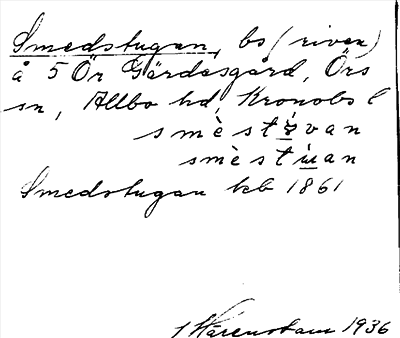 Smedstugan, bs (riven)
å 5 Ör Gärdesgård, Örs
sn, Allbo hd, Kronobs l
smèstůvan
smèstùan
Smedstugan kb 1861
Wärenstam 1936